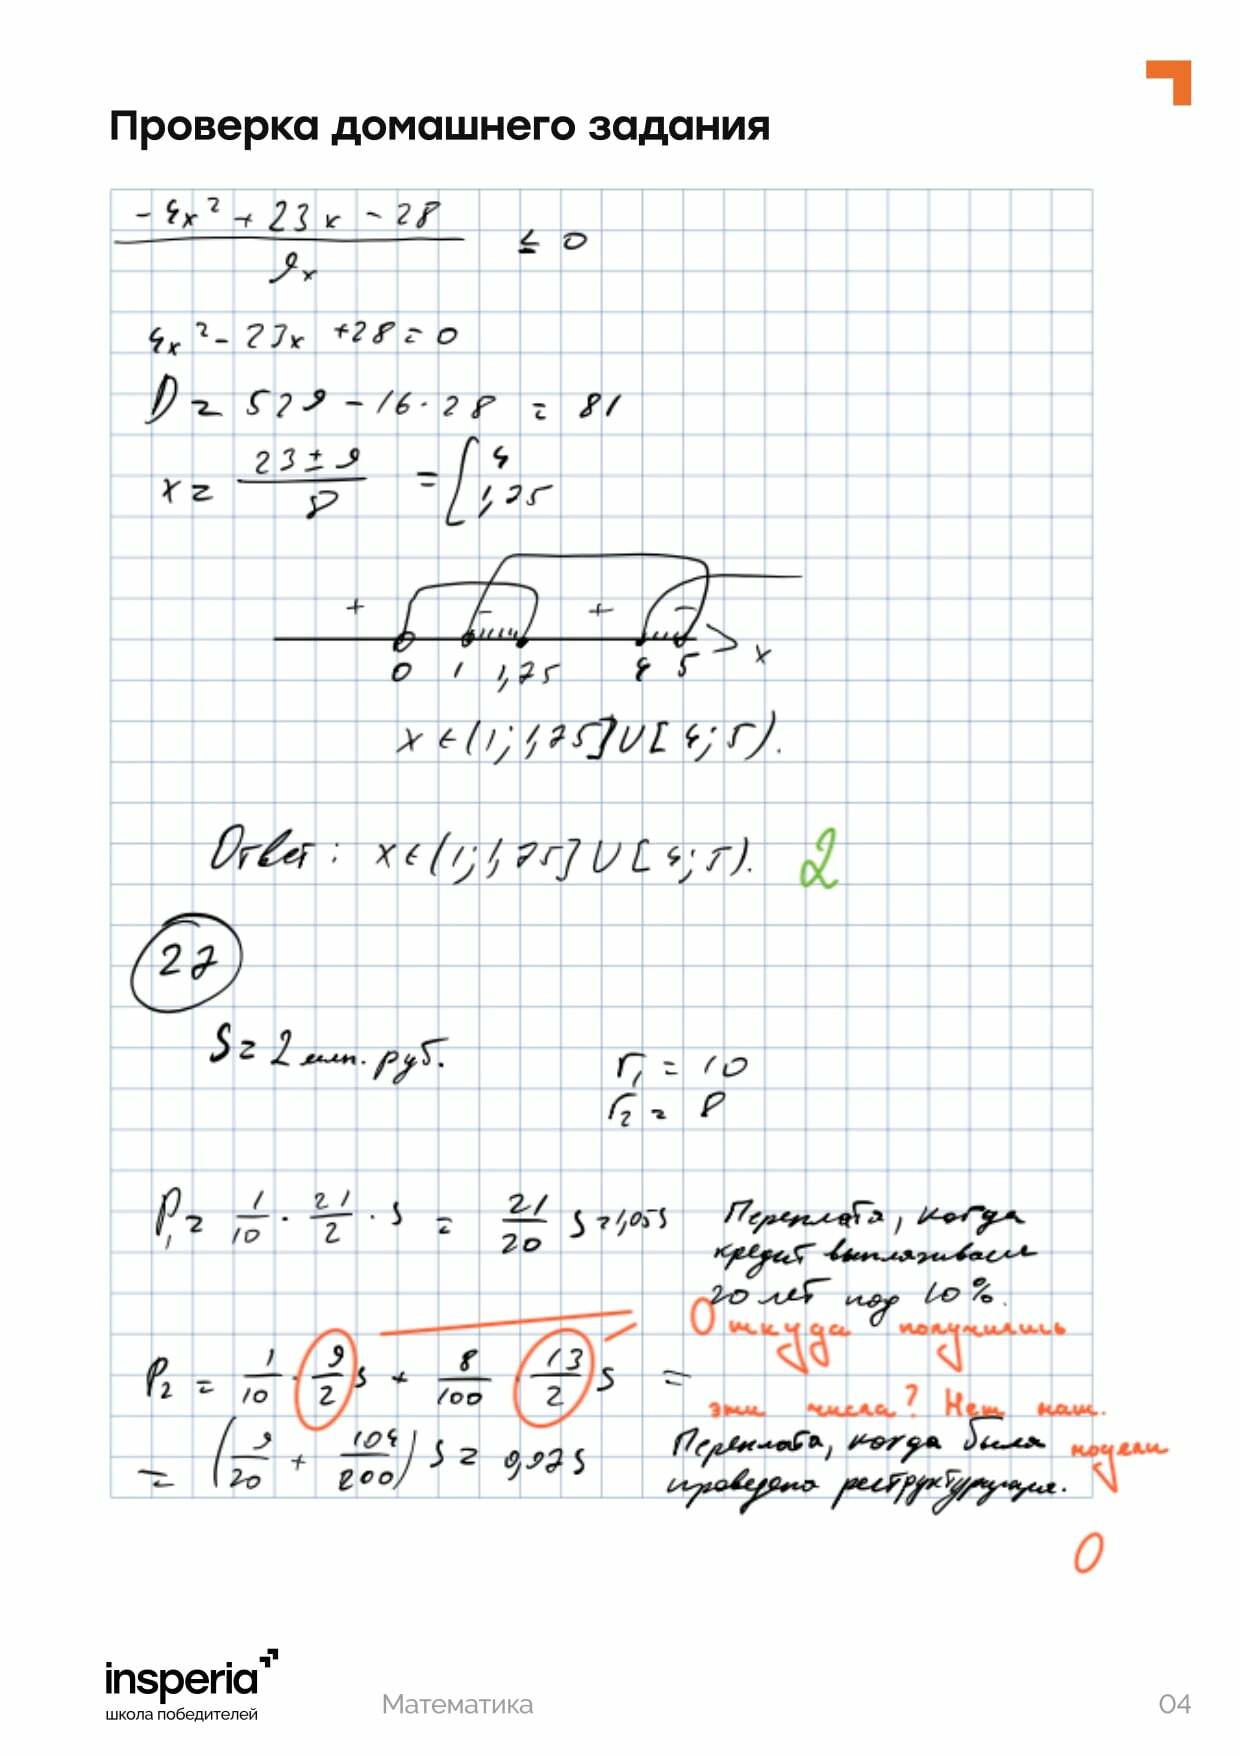 Проверка домашнего задания
-4x² + 23x - 28
9x
≤ 0
4x² - 23x + 28 = 0
D = 529 - 16 · 28 = 81
x = (23 ± 9)/8 = [4
1,75
+ - + -
0 1 1,75 4 5 x
x ∈ (1; 1,75] ∪ [4; 5).
Ответ: x ∈ (1; 1,75] ∪ [4; 5). 2
27
S = 2 млн. руб.
r₁ = 10
r₂ = 8
P₁ = 1/10 · 21/2 · S = 21/20 S = 1,05S
Переплата, когда
кредит выплачивали
20 лет под 10%.
Откуда получились
P₂ = 1/10 · 9/2 S + 8/100 · 13/2 S =
эти числа? Нет мат.
модели
= (9/20 + 104/200) S = 0,97S
Переплата, когда была
проведена реструктуризация.
0
insperia
школа победителей
Математика
04